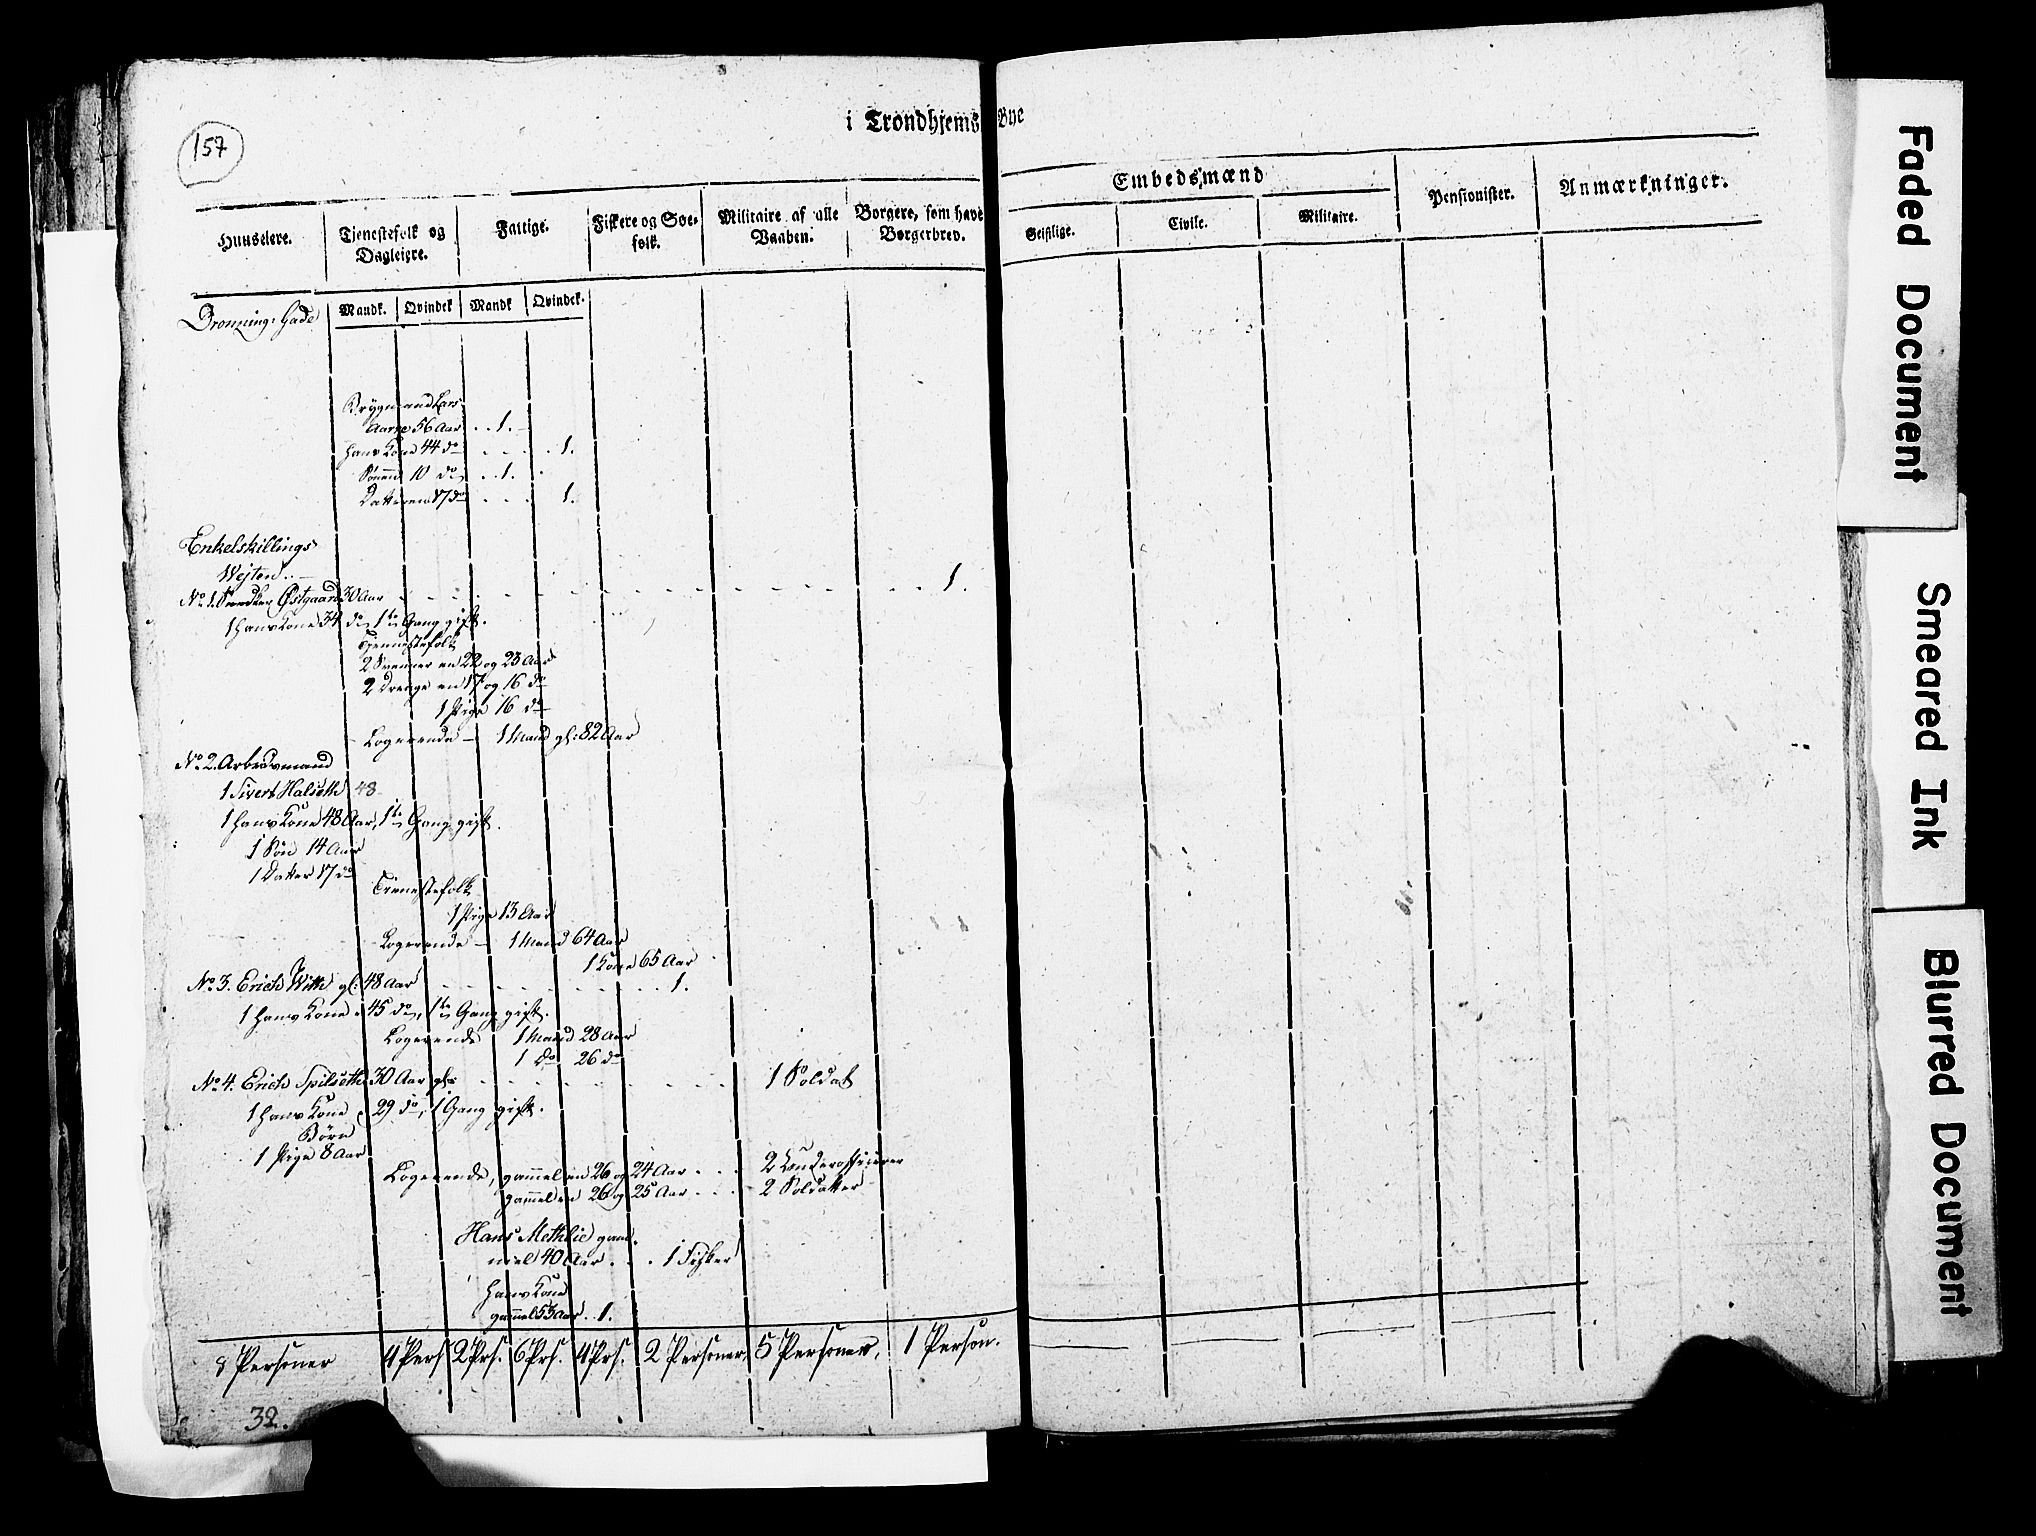 157
i Trondhjems Bye
Huuseiere.
Tjenestefolk og Dagleiere.
Fattige.
Fiskere og Søefolk.
Militaire af alle Vaaben.
Borgere, som have Borgerbrev.
Embedsmænd
Geistlige.
Civile.
Militaire.
Pensionister.
Anmærkninger.
Mandk. Qvindek Mandk Qvindek.
Dronning: Gade
Brygmand Lars
Aarre 56 Aar . . 1.
hans Kone 44 do . . . . 1.
Sønnen 10 do . . 1.
Datteren 17 do . . . 1.
Enkelskillings
Wejten . .
No 1. Snedker Østgaard 30 Aar . . . . 1.
1 hans Kone 34 do, 1te Gang gift.
Tjennestefolk
2 Svenner en 22 og 23 Aar
2 Drenge en 17 og 16 do
1 Pige 16 do
Logerende — 1 Mand gl: 82 Aar
No 2. Arbeidsmand
1 Sivert Halseth 48
1 hans Kone 48 Aar, 1te Gang gift.
1 Søn 14 Aar
1 Datter 17 do
Tienestefolk
1 Pige 13 Aar
Logerende — 1 Mand 64 Aar
1 Kone 65 Aar
No 3. Erich With gl: 48 Aar . . . . 1.
1 hans Kone 45 do, 1te Gang gift.
Logerende 1 Mand 28 Aar
1 do 26 do
No 4. Erich Spilseth 30 Aar gl: . . . . 1 Soldat
1 hans Kone 29 do, 1 Gang gift.
Børn
1 Pige 8 Aar
Logerende, gammel en 26 og 24 Aar . . . 2 Underofficierer
gam̅el en 26 og 25 Aar . . . 2 Soldatter
Hans Methlie gam̅
mel 40 Aar . . . 1 Fisker
hans Kone
gam̅el 53 Aar . . 1.
8 Personer 4 Pers 2 Prs. 6 Prs. 4 Prs. 2 Personer, 5 Personer, 1 Person.
32.
Faded Document
Smeared Ink
Blurred Document